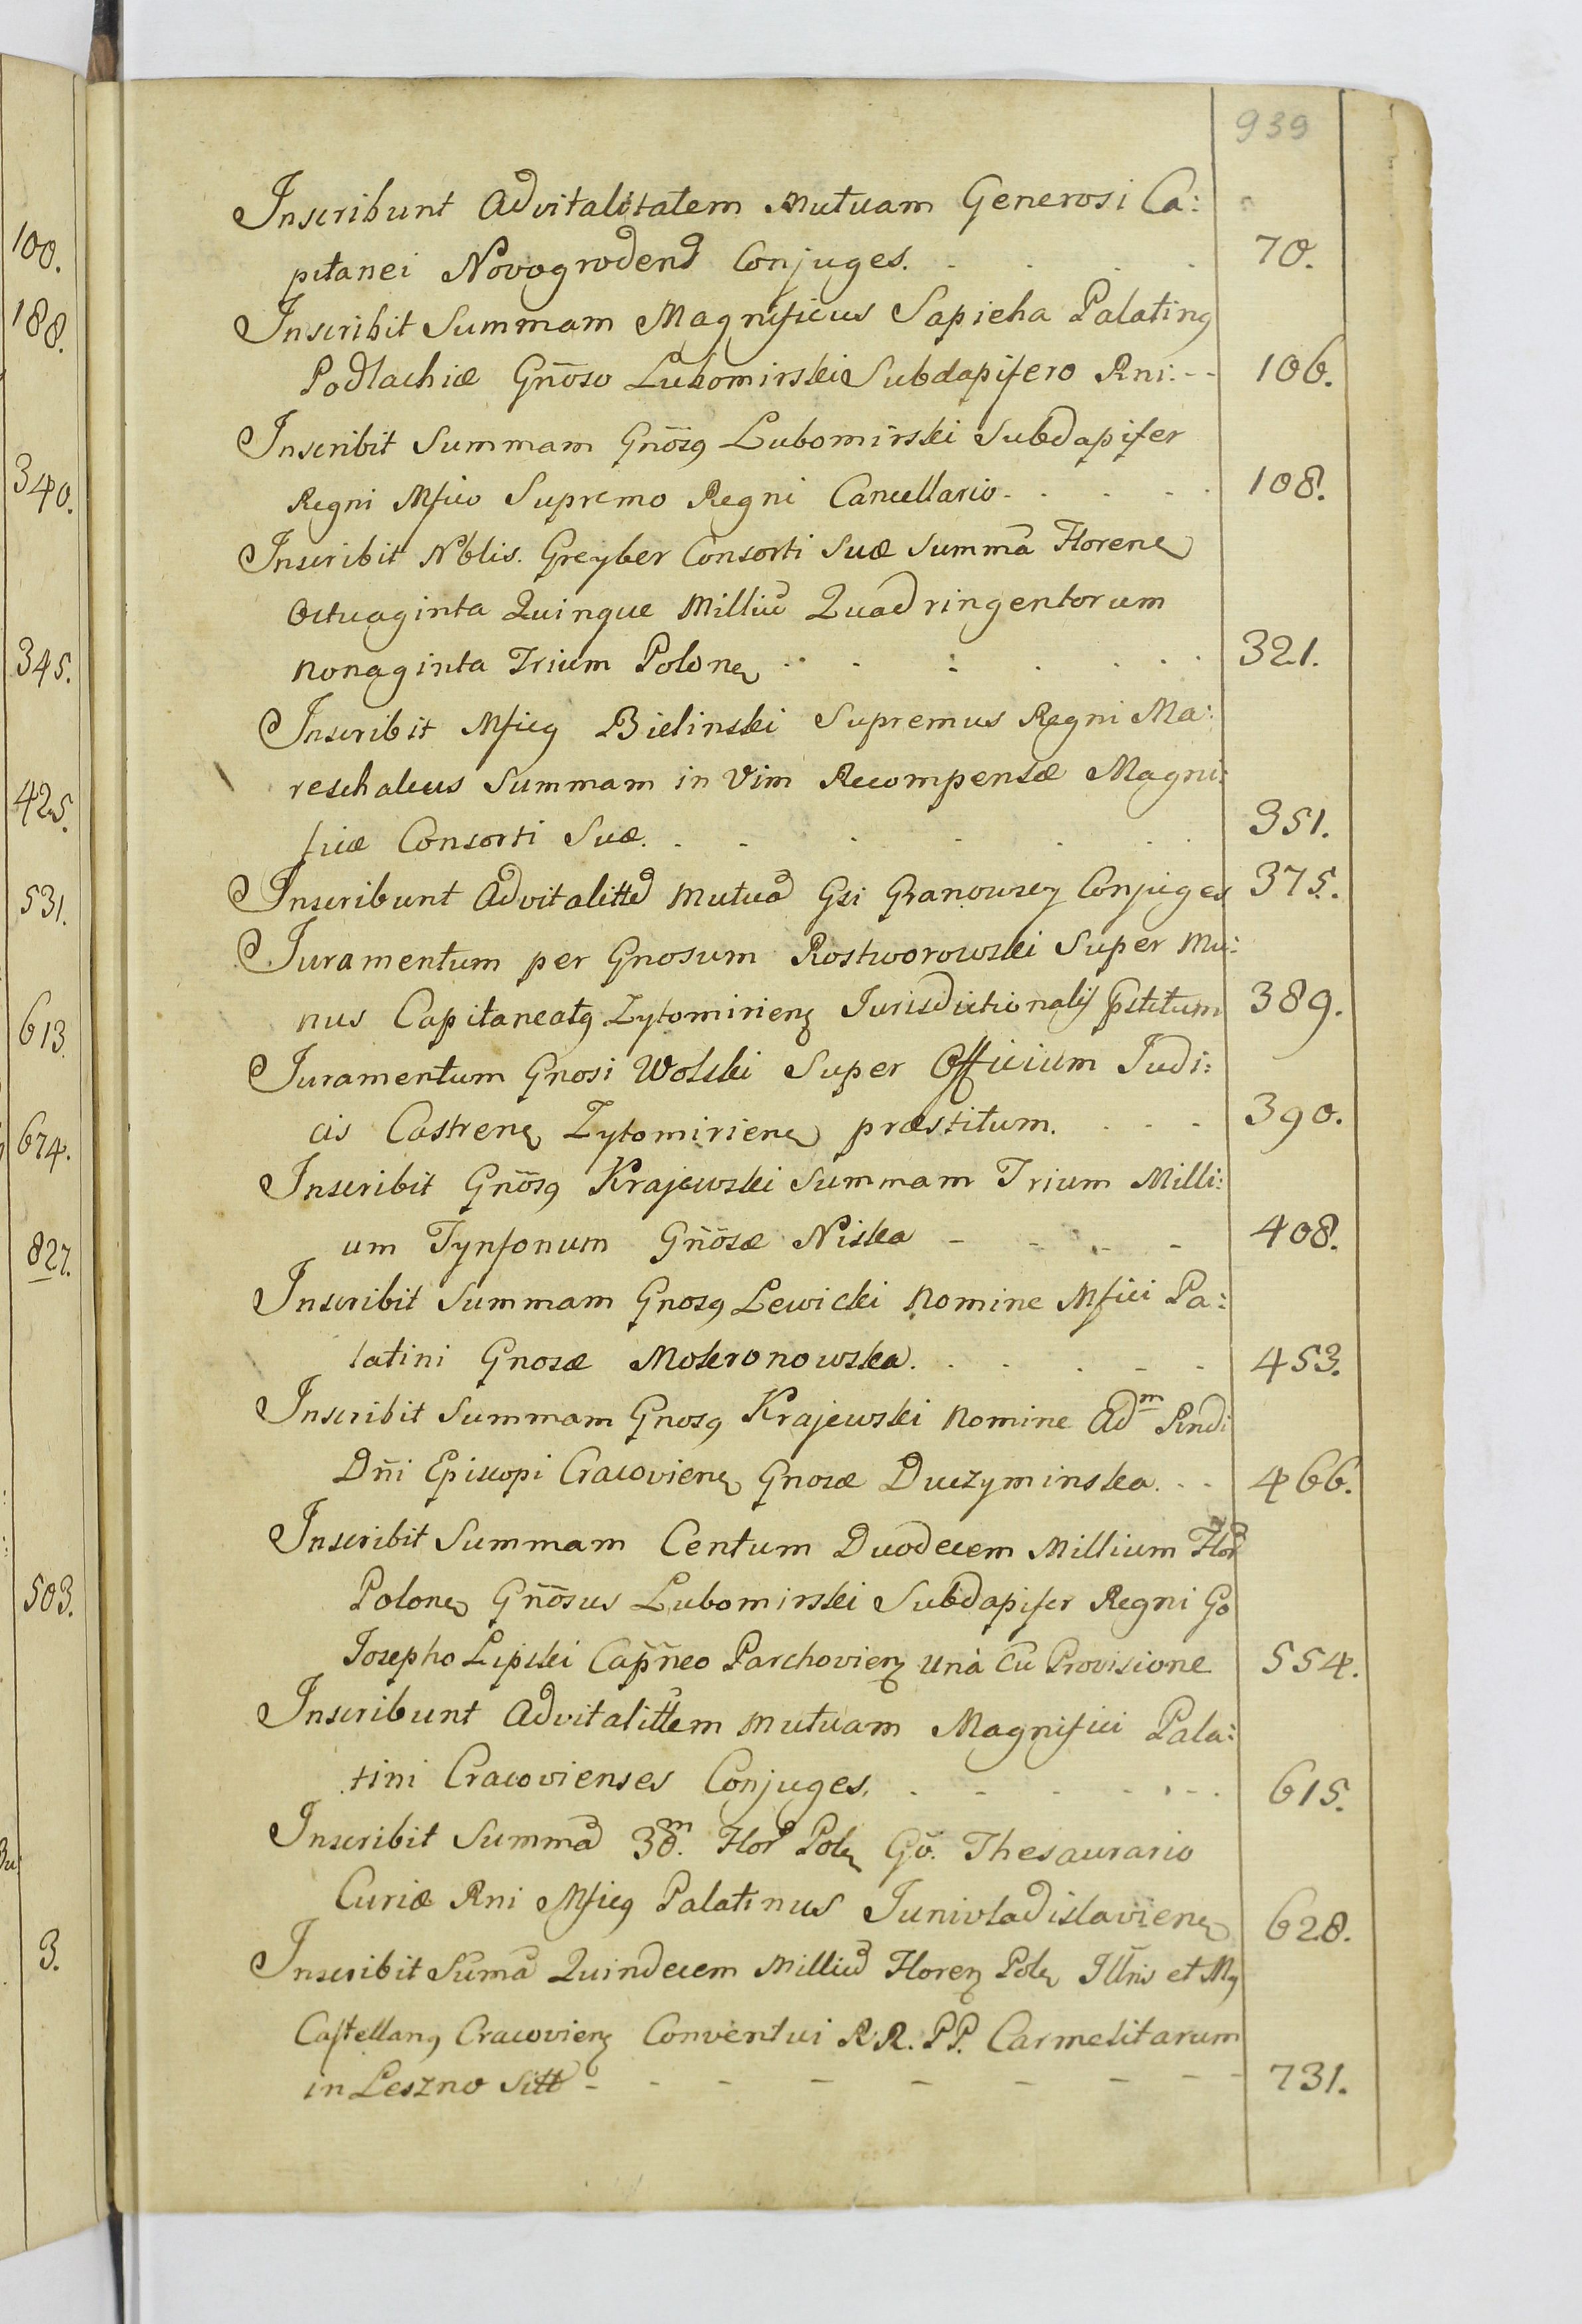 939
100.
188.
340.
345.
425.
531.
613.
674.
827.
503.
3.
Inscribunt Advitalitatem Mutuam Generosi Ca:
pitanei Novogrodens Conjuges. 70.
Inscribit Summam Magnificus Sapieha Palatinꝯ
Podlachiæ Gn̄oso Lubomirski Subdapifero Rni. 106.
Inscribit Summam Gn̄osꝯ Lubomirski Subdapifer
Regni Mfico Supremo Regni Cancellario 108.
Inscribit Nblis. Greyber Consorti Suæ Summā Floren
Octuaginta Quinque Milliū Quadringentorum
Nonaginta Trium Polon 321.
Inscribit Mficꝯ Bielinski Supremus Regni Ma:
reschalcus Summam in Vim Recompensæ Magni:
ficæ Consorti Suæ. 351.
Inscribunt Advitalittē Mutuā Gsi Granowscy Conjuges 375.
Juramentum per Gnosum Rostworowski Super Mu:
nus Capitaneatꝯ Zytomirien Jurisdictionalis Pstitum 389.
Juramentum Gnosi Wolski Super Officium Judi:
cis Castren Zytomirien præstitum. 390.
Inscribit Gn̄osꝯ Krajewski Summam Trium Milli:
um Tynfonum Gn̄osæ Niska 408.
Inscribit Summam Gnosꝯ Lewicki Nomine Mfici Pa:
latini Gnosæ Mokronowska. 453.
Inscribit Summam Gnosꝯ Krajewski Nomine Adm Rndi
Dn̄i Episcopi Cracovien Gnosæ Duczyminska. 466.
Inscribit Summam Centum Duodecem Millium Flor
Polon Gn̄osus Lubomirski Subdapifer Regni Go
Josepho Lipski Cap̄neo Parchovien Unà Cū Provisione 554.
Inscribunt Advitalittem Mutuam Magnifici Pala:
tini Cracovienses Conjuges. 615.
Inscribit Summā 30.m Flor Pol Go. Thesaurario
Curiæ Rni Mficꝯ Palatinus Junivladislavien 628.
Inscribit Sumā Quindecem Milliū Floren Pol Illris et Mꝯ
Castellanꝯ Cracovien Conventui RR. PP. Carmelitarum
in Leszno Sitt 731.